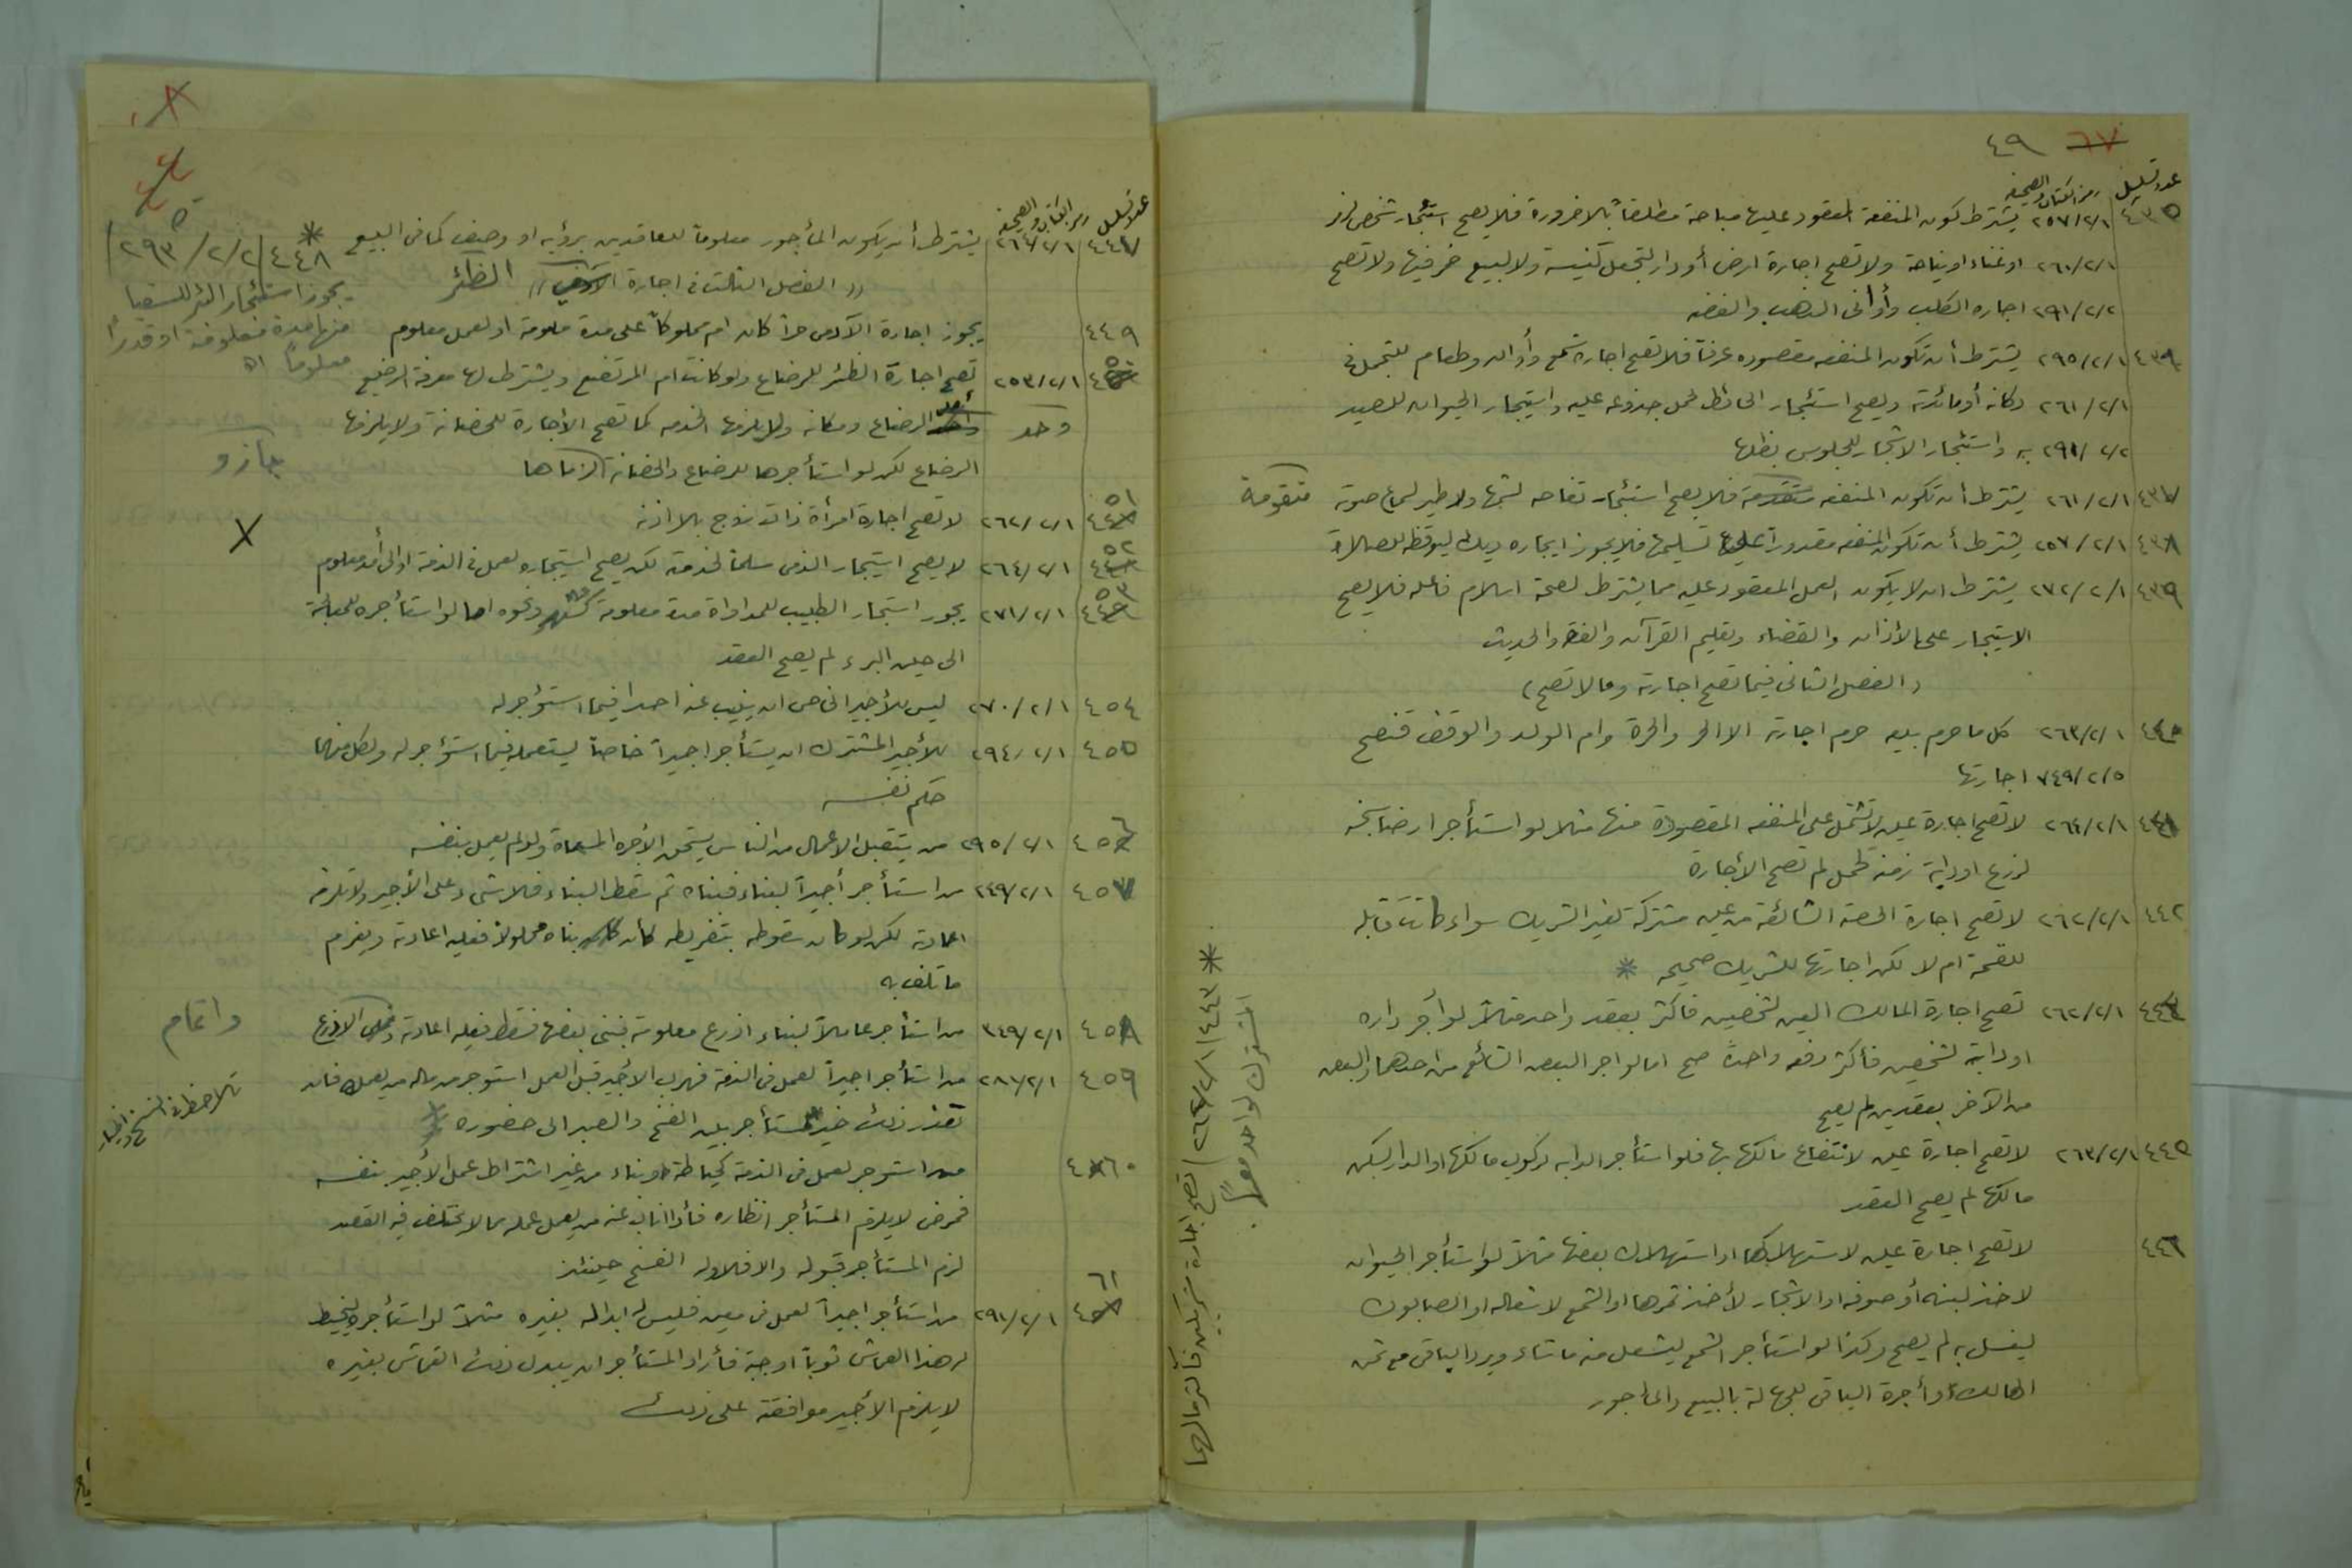 ٤٩ ٦٧
عدد تسلسل رمز الكتاب والصحيفة
٤٣٥ ٢٥٧/٢/١ يشترط كون المنفعة المعقود عليها مباحة مطلقاً بلا ضرورة فلا يصح استئجار شخص لزمر
٢٦٠/٢/١ او غناء او نياحة ولا تصح اجارة ارض أو دار لتجعل كنيسة ولا لبيع خمر فيها ولا تصح
٢٩١/٢/٢ اجاره الكلب وأواني الذهب والفضه
٤٣٦ ٢٩٥/٢/١ يشترط أن تكون المنفعه مقصوده عرفاً فلا تصح اجارة شمع وأوان وطعام للتجمل في
٢٦١/٢/١ دكانه أو مائدته ويصح استئجار الحائط لحمل جذوعه عليه واستيجار الحيوان للصيد
٢٩١/٢/٢ به واستئجار الاشجار للجلوس بظلها
٤٣٧ ٢٦١/٢/١ يشترط أن تكون المنفعه متقدمة فلا يصح استئجار تفاحه لشمها ولا طير لسماع صوته متقومة
٤٣٨ ٢٥٧/٢/١ يشترط أن تكون المنفعه مقدوراً على تسليمها فلا يجوز ايجاره ديك ليوقظه للصلاة
٤٣٩ ٢٧٢/٢/١ يشترط ان لا يكون العمل المعقود عليه مما يشترط لصحة اسلام فاعله فلا يصح
الاستيجار على الأذان والقضاء وتعليم القرآن والفقه والحديث
(الفصل الثاني فيما تصح اجارته وما لا تصح)
٤٤٠ ٢٦٣/٢/١ كل ما حرم بيعه حرم اجارته الا الحر والحرة وام الولد والوقف فتصح
٧٤٩/٢/٥ اجارتها
٤٤١ ٢٦٤/٢/١ لا تصح اجارة عين لا تشتمل على المنفعه المقصودة منها مثلا لو استأجر ارضا سبخه
لزرع او دابة زمنة لحمل لم تصح الأجارة
٤٤٢ ٢٦٢/٢/١ لا تصح اجارة الحصة الشائعة من عين مشتركة لغير الشريك سواء كانت قابله
للقسمة ام لا لكن اجارتها للشريك صحيحه *
٤٤٤ ٢٦٢/٢/١ تصح اجارة المالك العين لشخصين فأكثر بعقد واحد مثلاً لو أجر داره
او دابة لشخصين فأكثر دفعه واحدة صح اما لو اجر البعض الشائع من احدهما والبعض
من الآخر بعقدين لم يصح
٤٤٥ ٢٦٣/٢/١ لا تصح اجارة عين لانتفاع مالكها بها فلو استأجر الدابه لركوب مالكها او الدار ليسكن
مالكها لم يصح العقد
٤٤٦ لا تصح اجارة عين لاستهلاكها او استهلاك بعضها مثلاً لو استأجر الحيوان
لاخذ لبنه أو صوفه او الاشجار لأخذ ثمرها او الشمع لاشعاله او الصابون
ليغسل به لم يصح وكذا لو استأجر الشمع ليشعل منه ما شاء ويرد الباقي مع ثمن
الهالك وأجرة الباقي للجهالة بالمبيع والمأجور
* ٤٤٣/٢٦٢/٢/١ تصح اجارة شريكين فأكثر مالهما
المشترك لواحد معاً.
عدد تسلسل رمز الكتاب والصحيفة
٤٤٧ ٢٦٤/٢/١ يشترط أن يكون المأجور معلوماً للعاقدين برؤية او وصف كما في البيع *
٤٤٨/٢/٢/٢٩٣
يجوز استئجار البئر للسقيا
منها مدة معلومة او قدراً
معلوماً اه
((الفصل الثالث في اجارة الآدمي)) الظئر
٤٤٩ يجوز اجارة الآدمي حراً كان ام مملوكاً على مدة معلومة او لعمل معلوم
٤٥٠ ٢٥٣/٢/١ تصح اجارة الظئر للرضاع ولو كانت ام المرتضع ويشترط لها معرفة الرضيع
وأمد الرضاع ومكانه ولا يلزمها الخدمه كما تصح الأجارة للحضانة ولا يلزمها
الرضاع لكن لو استأجرها للرضاع والحضانة الزماها جاز و
٤٥١ ٢٦٢/٢/١ لا تصح اجارة امرأة ذات زوج بلا اذنه X
٤٥٢ ٢٦٤/٢/١ لا يصح استيجار الذمي مسلماً لخدمة لكن يصح استيجاره لعمل في الذمة او الى أمد معلوم
٤٥٣ ٢٧١/٢/١ يجوز استيجار الطبيب للمداواة مدة معلومة كشهر ونحوه اما لو استأجره للمعالجة
الى حين البرء لم يصح العقد
٤٥٤ ٢٧٠/٢/١ ليس للأجير الخاص ان ينيب عنه احدا فيما استؤجر له
٤٥٥ ٢٩٤/٢/١ للأجير المشترك ان يستأجر اجيراً خاصاً يستعمله فيما استؤجر له ولكل منهما
حكم نفسه
٤٥٦ ٢٩٥/٢/١ من يتقبل الاعمال من الناس يستحق الأجره المسماة ولو لم يعمل بنفسه
٤٥٧ ٢٤٩/٢/١ من استأجر أجيراً لبناء فبناه ثم سقط البناء فلا شيء على الأجير ولا تلزمه
اعادته لكن لو كان سقوطه بتفريطه كأن بناه محلولاً فعليه اعادته ويغرم
ما تلف به
٤٥٨ ٣٤٩/٢/١ من استأجر عاملاً لبناء اذرع معلومة فبنى بعضها فسقط فعليه اعادته الاذرع واتمام
٤٥٩ ٢٨٦/٢/١ من استأجر اجيراً لعمل في الذمة فهرب الأجير قبل العمل استوجر من ماله من يعمله فان
تعذر ذلك خير المستأجر بين الفسخ والصبر الى حضوره *
٤٦٠ من استوجر لعمل في الذمة كخياطة وبناء من غير اشتراط عمل الأجير بنفسه
فمرض لا يلزم المستأجر انظاره فأذا اناب عنه من يعمل عمله مما لا يختلف فيه القصد
لزم المستأجر قبوله والا فلا وله الفسخ حينئذ
٤٦١ ٢٩١/٢/١ من استأجر اجيراً لعمل في معين فليس له ابداله بغيره مثلاً لو استأجره ليخيط
له هذا القماش ثوباً او جبة فأراد المستأجر ان يبدل ذلك القماش بغيره
لا يلزم الأجير موافقته على ذلك